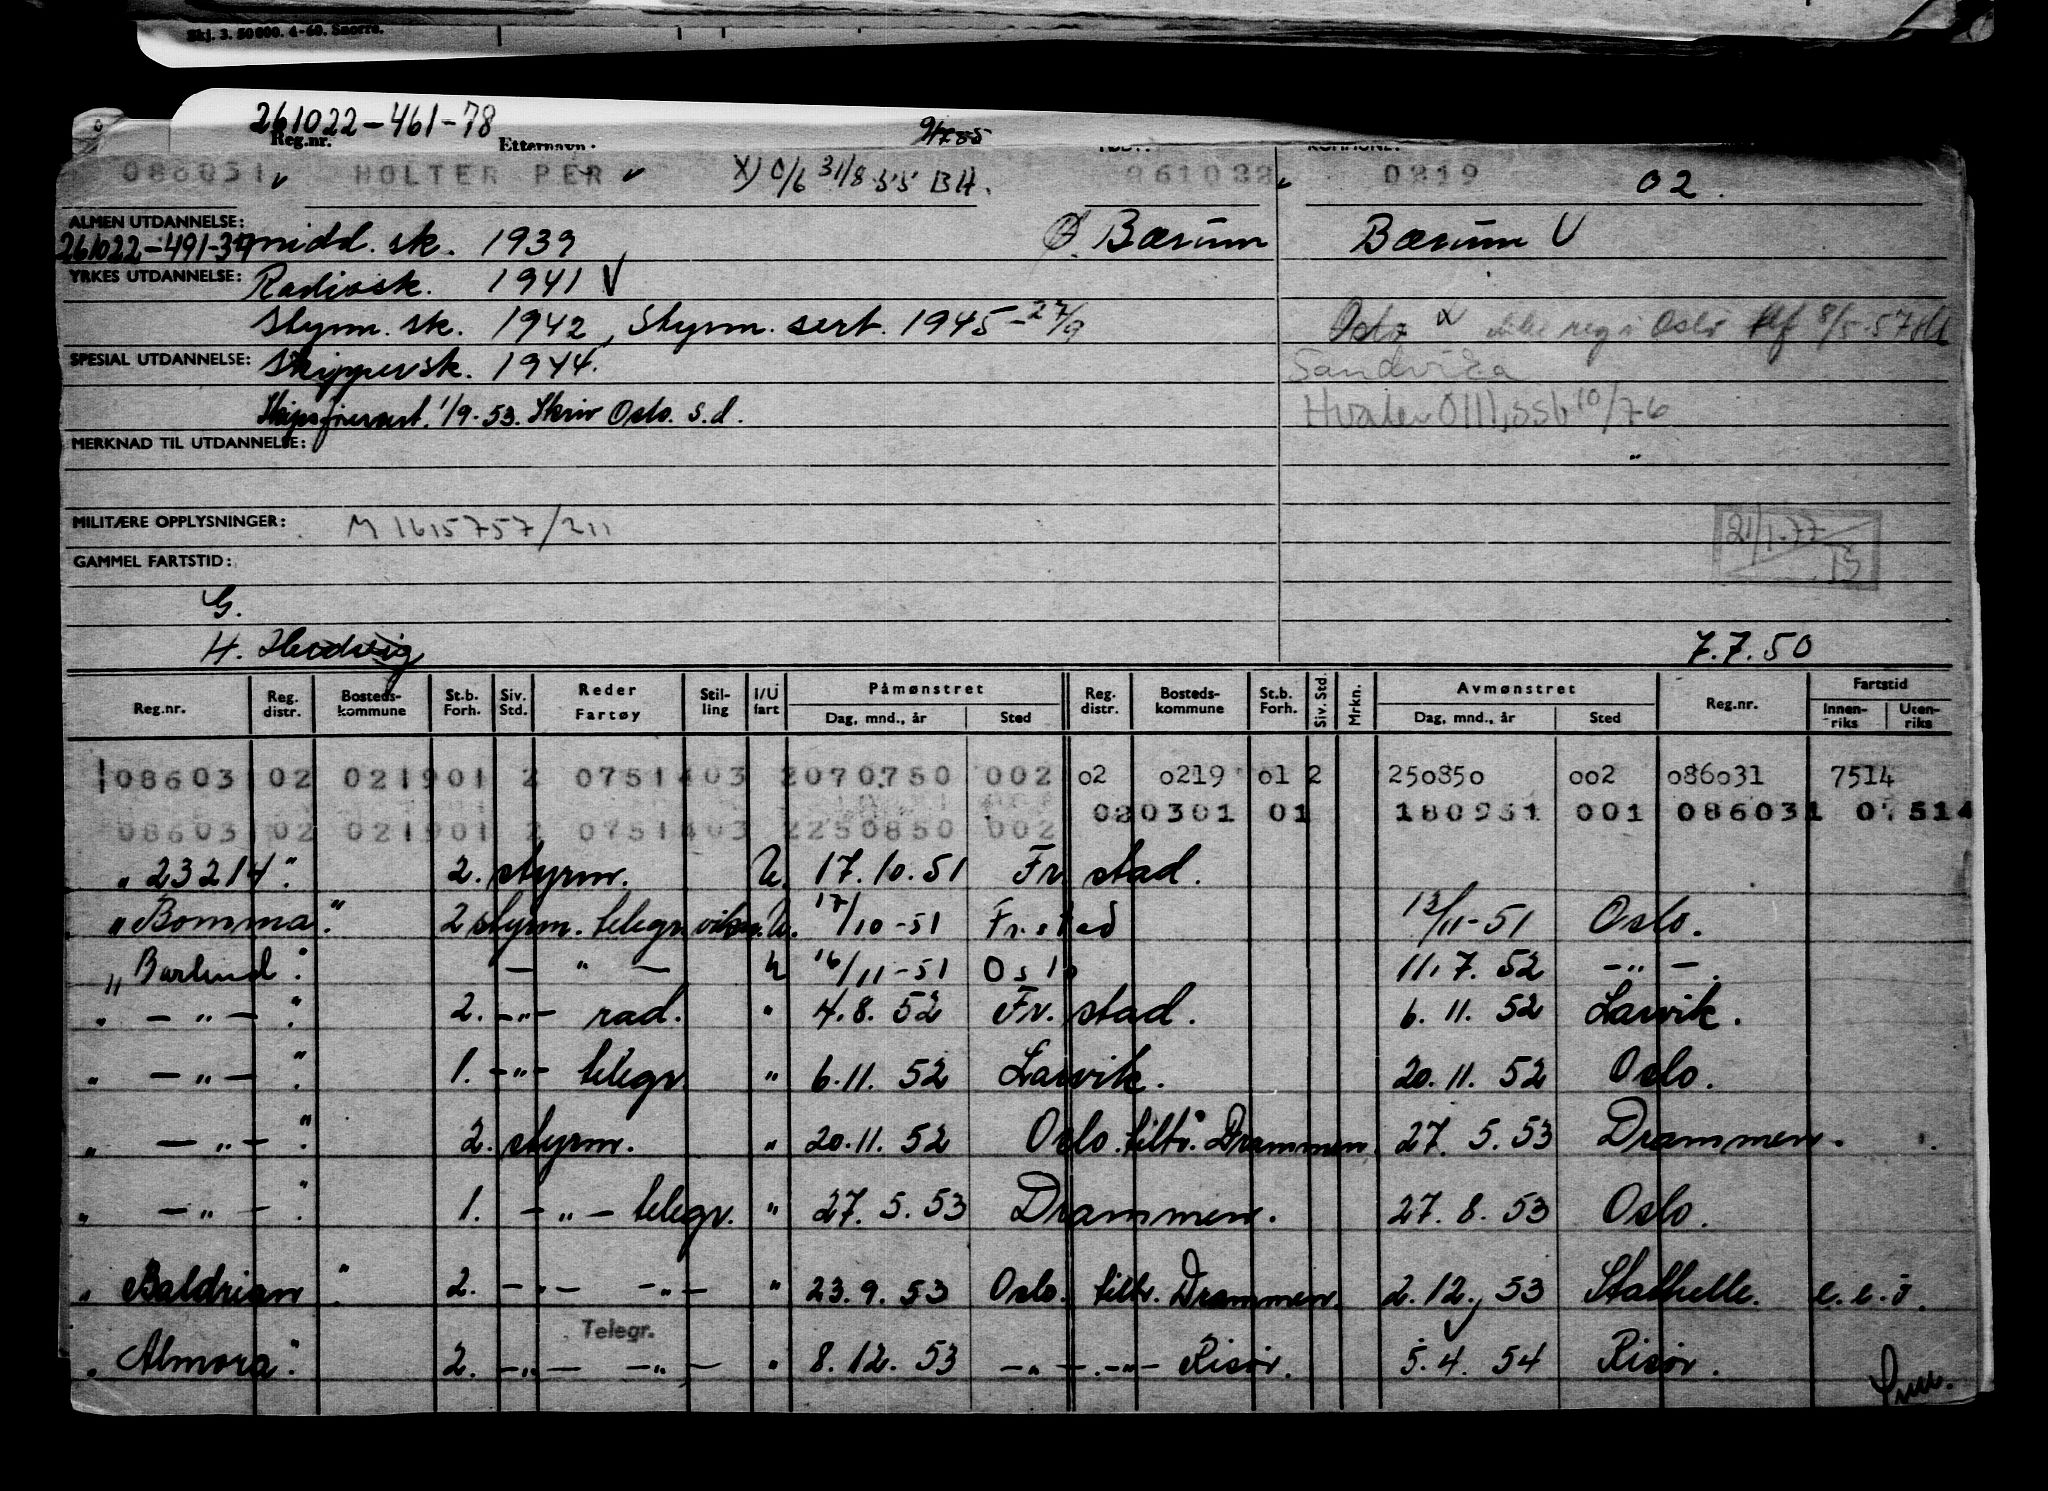 Skj. 3. 50 000. 4-60. Snorre.
261022-461-78
Reg.nr. Etternavn:
086031 HOLTER PER X) 0/6 31/8 55 BH. 261022 0219 02.
ALMEN UTDANNELSE:
261022-491-37 midd. sk. 1939 Ø. Bærum Bærum
YRKES UTDANNELSE: Radiosk. 1941
Styrm. sk. 1942, Styrm. sert. 1945 - 27/9 Oslo x ikke reg i Oslo 8/5-57
SPESIAL UTDANNELSE: Skippersk. 1944. Sandvika
Skipsførersert. 1/9-53. Skriv Oslo. s.d. Hvaler 0111, ssb 10/76
MERKNAD TIL UTDANNELSE:
MILITÆRE OPPLYSNINGER: M 1615757/211 21/1-77
GAMMEL FARTSTID:
G.
H. Hedvig 7.7.50
Reg.nr. Reg. distr. Bosteds-kommune St.b. Forh. Siv. Std. Reder Fartøy Stil-ling I/U fart Påmønstret Dag, mnd., år Sted Reg. distr. Bosteds-kommune St.b. Forh. Siv. Std. Mrkn. Avmønstret Dag, mnd., år Sted Reg.nr. Fartstid Innen-riks Uten-riks
108603102 021901 2 0751403 2070750 002 02 0219 01 2 250850 002 086031 7514
020301 01 180951 001 086031 07514
08603102 021901 2 0751403 2250850 002
"23214". 2. styrm. U. 17.10.51 Fr. stad.
"Bomma". 2 styrm. telegr. U. 17/10-51 Fr.stad 13/11-51 Oslo.
"Barlind". — " — U 16/11-51 Oslo 11.7.52 —"—.
" —"— " 2. —"— rad. " 4.8.52 Fr. stad. 6.11.52 Larvik.
" —"— " 1. —"— telegr " 6.11.52 Larvik. 20.11.52 Oslo.
" —"— " 2. styrm. " 20.11.52 Oslo. tiltr. Drammen. 27.5.53 Drammen.
" —"— " 1. —"— telegr. " 27.5.53 Drammen. 27.8.53 Oslo.
"Baldrian". 2. —"— —"— " 23.9.53 Oslo. tiltr. Drammen. 2.12.53 Stathelle. e.e.ö.
Telegr.
"Almora". 2. —"— —"— " 8.12.53 —"—. —"— Risør. 5.4.54 Risør.